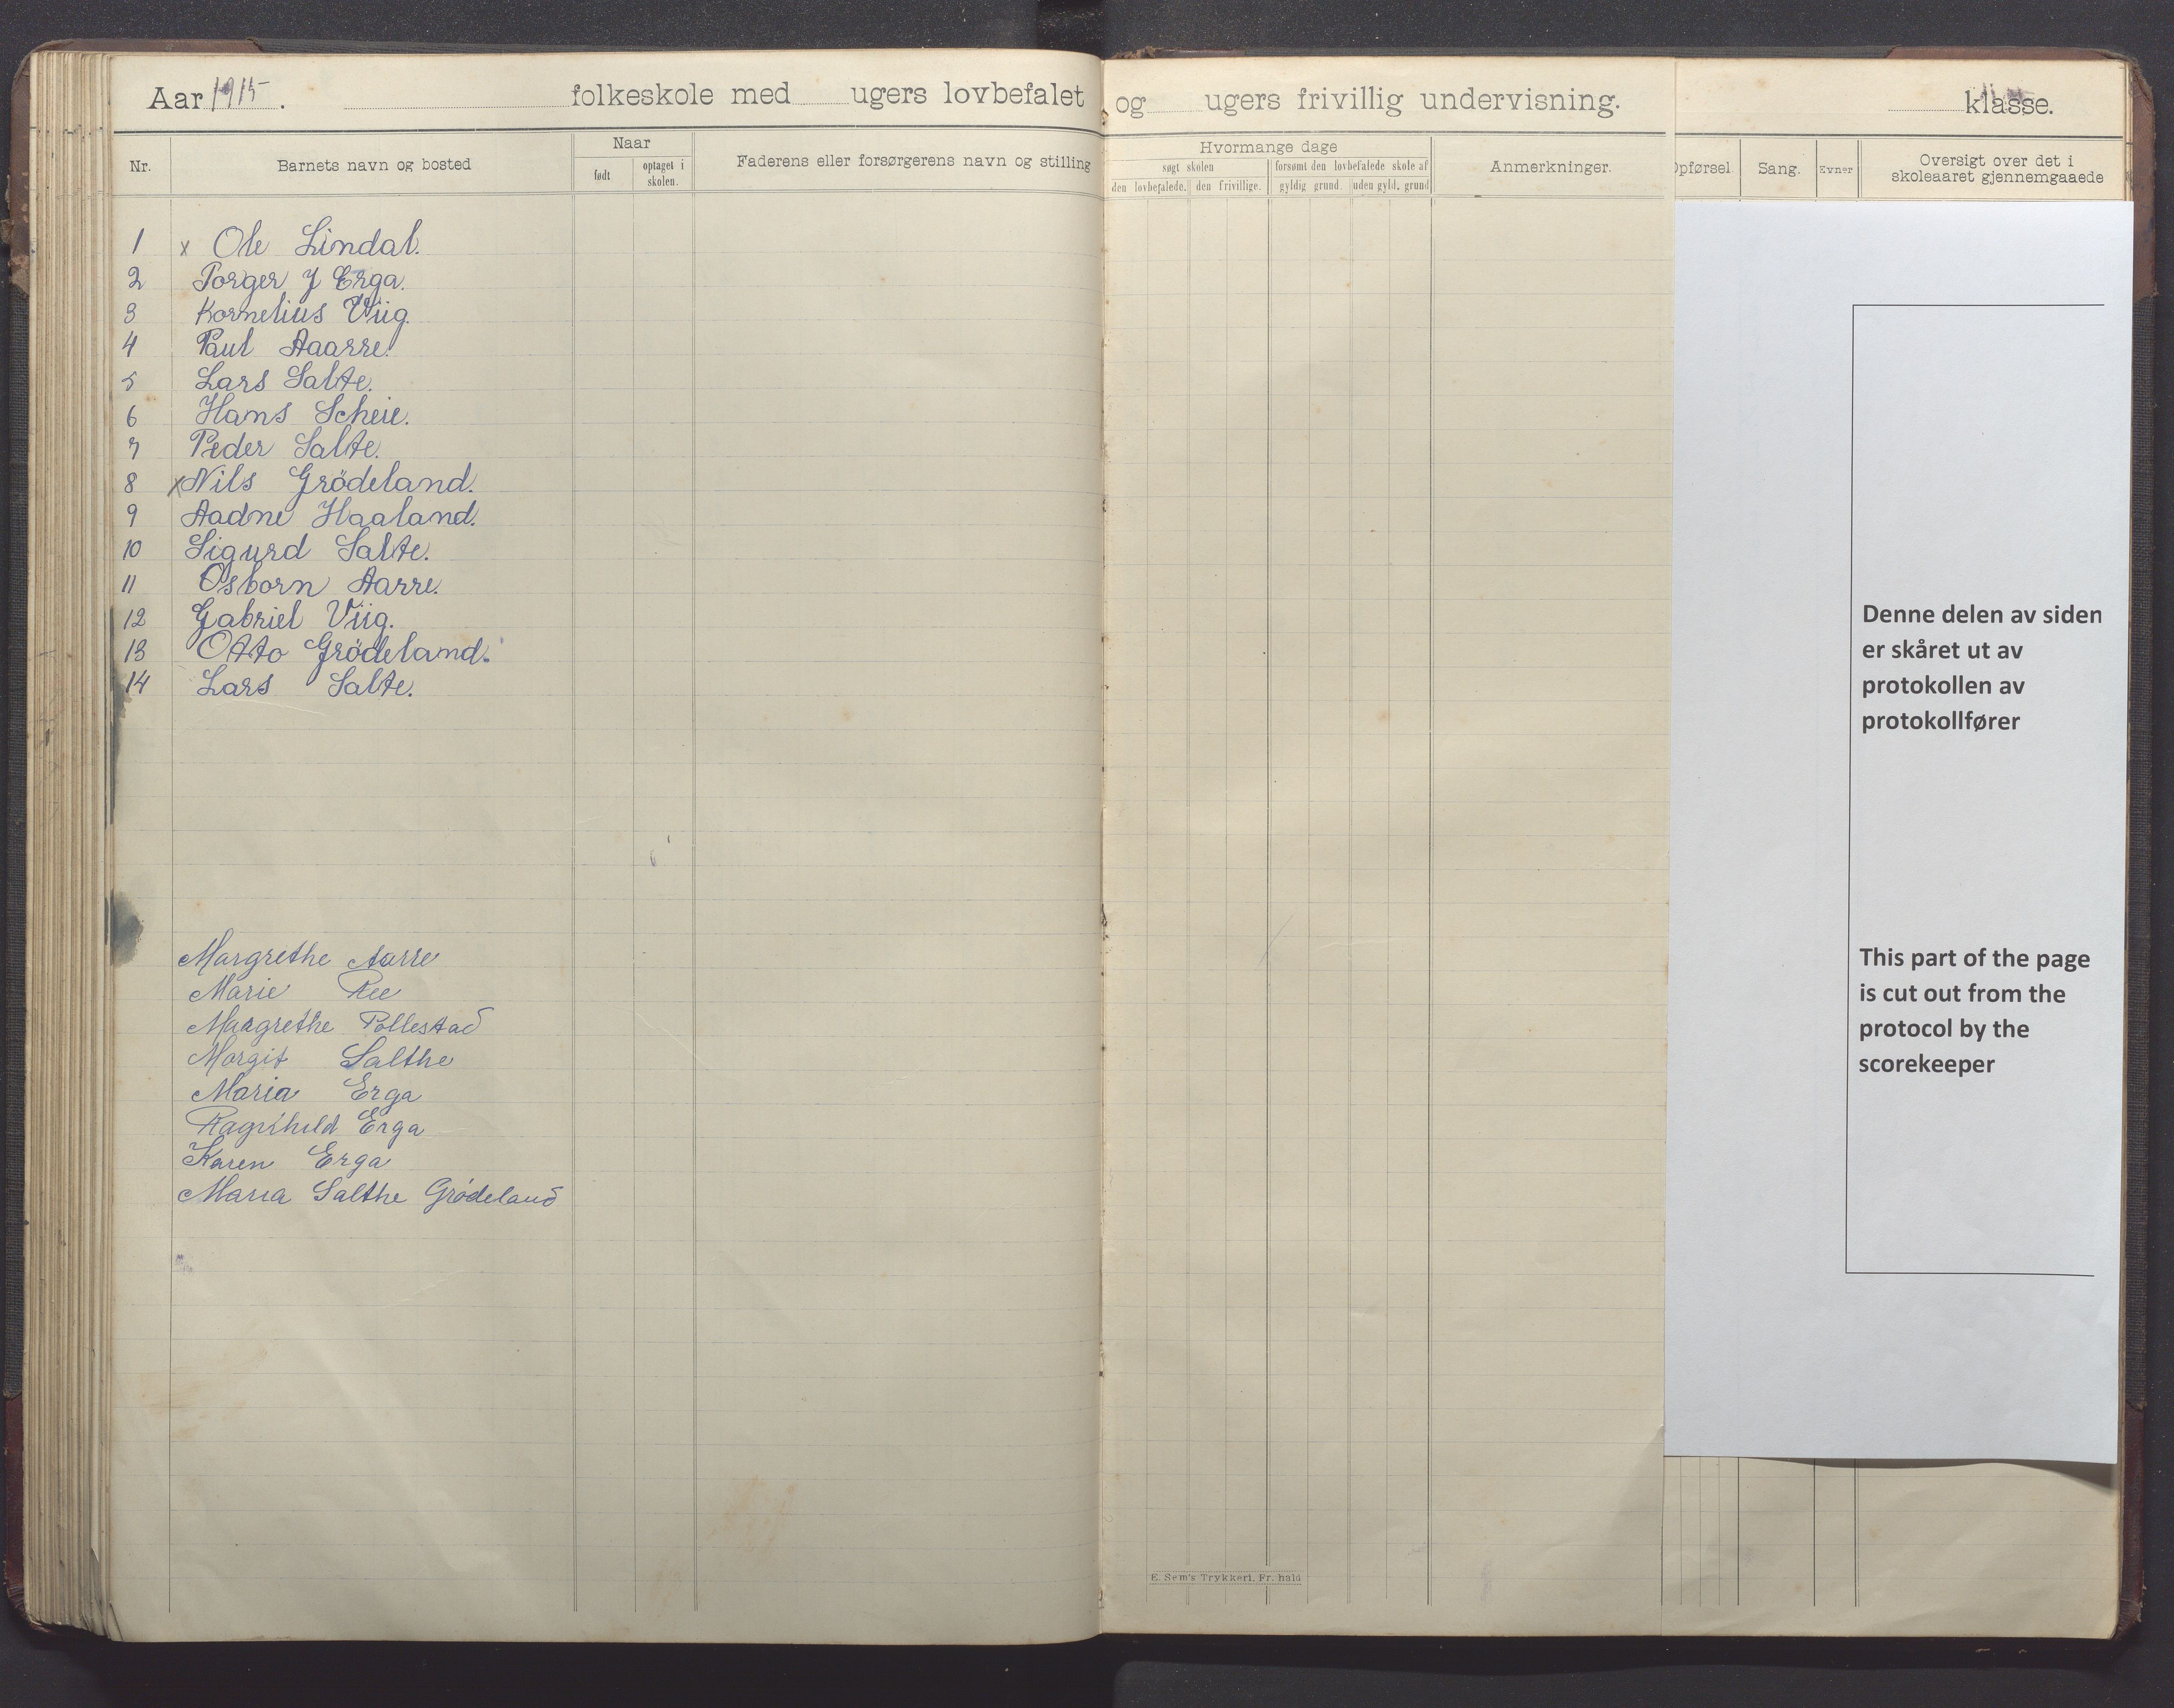 Aar 1915. folkeskole med ugers lovbefalet og ugers frivillig undervisning. klasse.
Nr.
Barnets navn og bosted
Naar
født
optaget i skolen.
Faderens eller forsørgerens navn og stilling
Hvormange dage
søgt skolen
forsømt den lovbefalede skole af
den lovbefalede. den frivillige. gyldig grund. uden gyld. grund
Anmerkninger.
Opførsel.
Sang.
Evner
Oversigt over det i
skoleaaret gjennemgaaede
1 x Ole Lindal.
2 Torger J Erga.
3 Kornelius Viig.
4 Paul Aaarre.
5 Lars Salte.
6 Hans Scheie.
7 Peder Salte.
8 x Nils Grödeland.
9 Aadne Haaland.
10 Sigurd Salte.
11 Osborn Aarre.
12 Gabriel Viig.
13 Otto Grödeland.
14 Lars Salte.
Margrethe Aarre
Marie Ree
Margrethe Pollestad
Margit Salthe
Maria Erga
Ragnhild Erga
Karen Erga
Maria Salthe Grødeland
E. Sem's Trykkeri, Fr. hald
Denne delen av siden
er skåret ut av
protokollen av
protokollfører
This part of the page
is cut out from the
protocol by the
scorekeeper